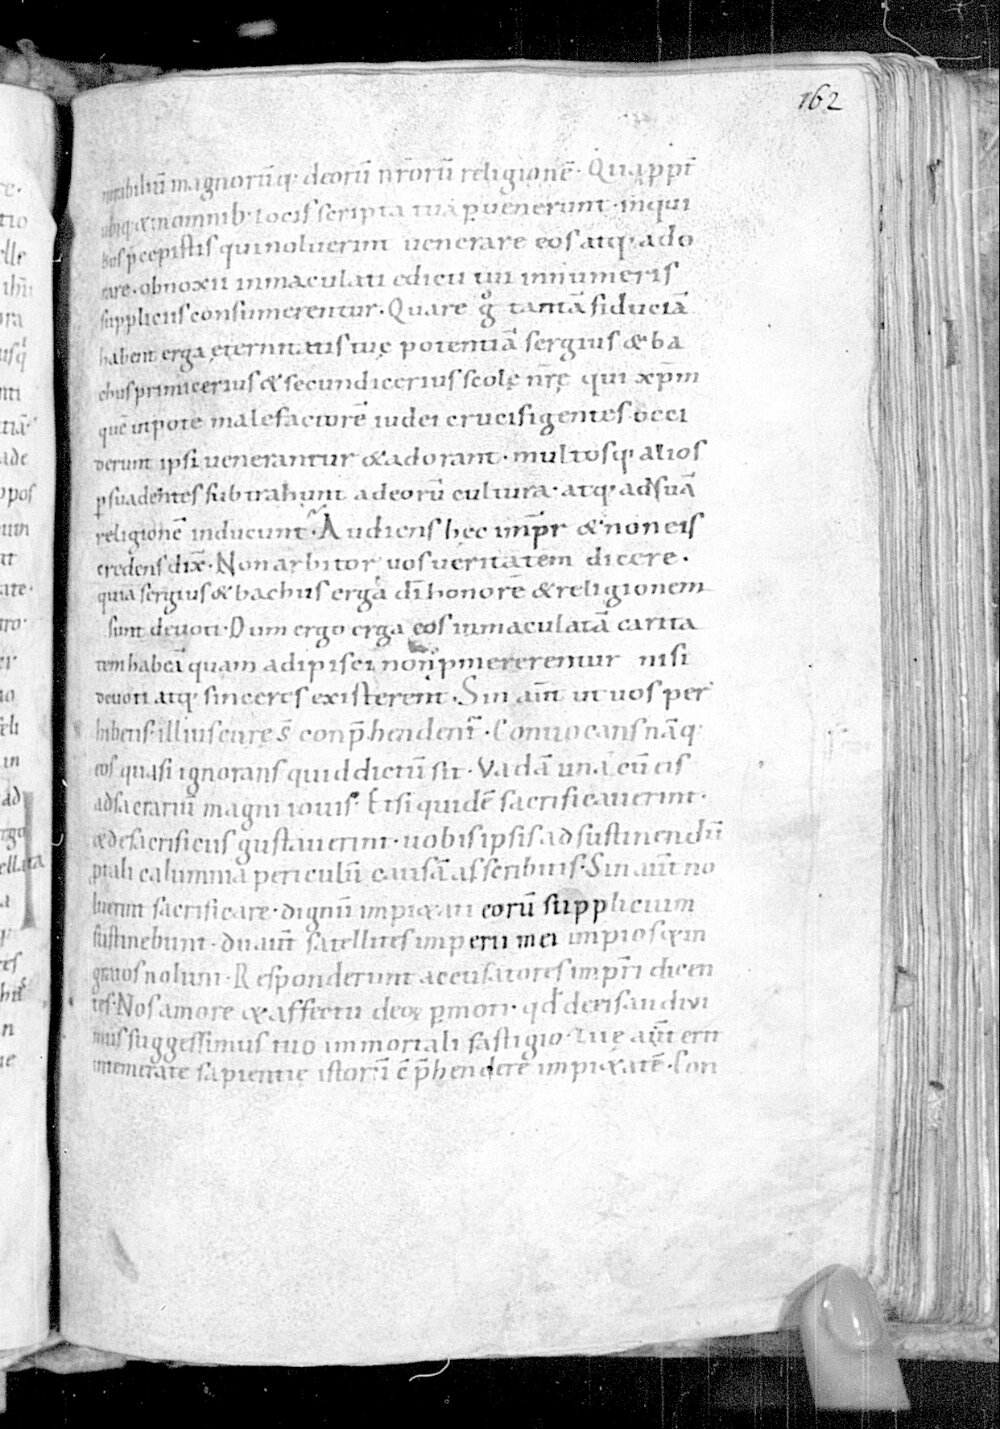 162
mirabiliũ magnorũq; deorũ nr̃orũ religionẽ. Quapp̃t
ubiq; & inomnib; locis scripta tua ꝑuenerunt. inqui
bus p̃cepistis quinoluerint uenerare eos atq; ado
rare. obnoxii inmaculati edicti tui innumeris
suppliciis consumerentur. Quare g̊ tantã fiduciã
habent erga ęternitatis tuę potentiã sergius & ba
chus primicerius & secundicerius scolę nr̃ę qui xp̃m
quẽ utpote malefactorẽ iudei crucifigentes occi
derunt ipsi uenerantur & adorant. multosq; alios
ꝑsuadentes subtrahunt adeorũ cultura. atq; adsuã
religionẽ inducunt. Audiens hec imp̃r & non eis
credens dix̃. Non arbitor uos ueritatem dicere.
quia sergius & bachus erga dĩ honorẽ & religionem
sunt deuoti. Dum ergo erga eos inmaculatã carita
tem habeã quam adipisci non ꝓmererentur nisi
deuoti atq; sinceres existerent. Sin aũt ut uos per
hibetis. illius cure s̃ conp̃hendent̃. Conuocans nãq;
eos quasi ignorans quid dictũ sit. Vadã una cũ eis
adsacrariũ magni iouis. Etsi quidẽ sacrificauerint.
& desacrificiis gustauerint. uobis ipsis ad sustinendũ
ꝑtali calumnia periculũ causã asscribitis. Sin aũt no
luerint sacrificare. dignũ impi&ati eorũ supplicium
sustinebunt. Du aũt satellites imperii mei impios & in
gratos nolunt. Responderunt accusatores imp̃ri dicen
tes. Nos amore & affectu deoꝝ ꝑmoti. qd̃ de eis audivi
mus suggessimus tuo immortali fastigio. Tuę aũt erit
intemerate sapientie istorũ c̃p̃hendere impi&atẽ. Con